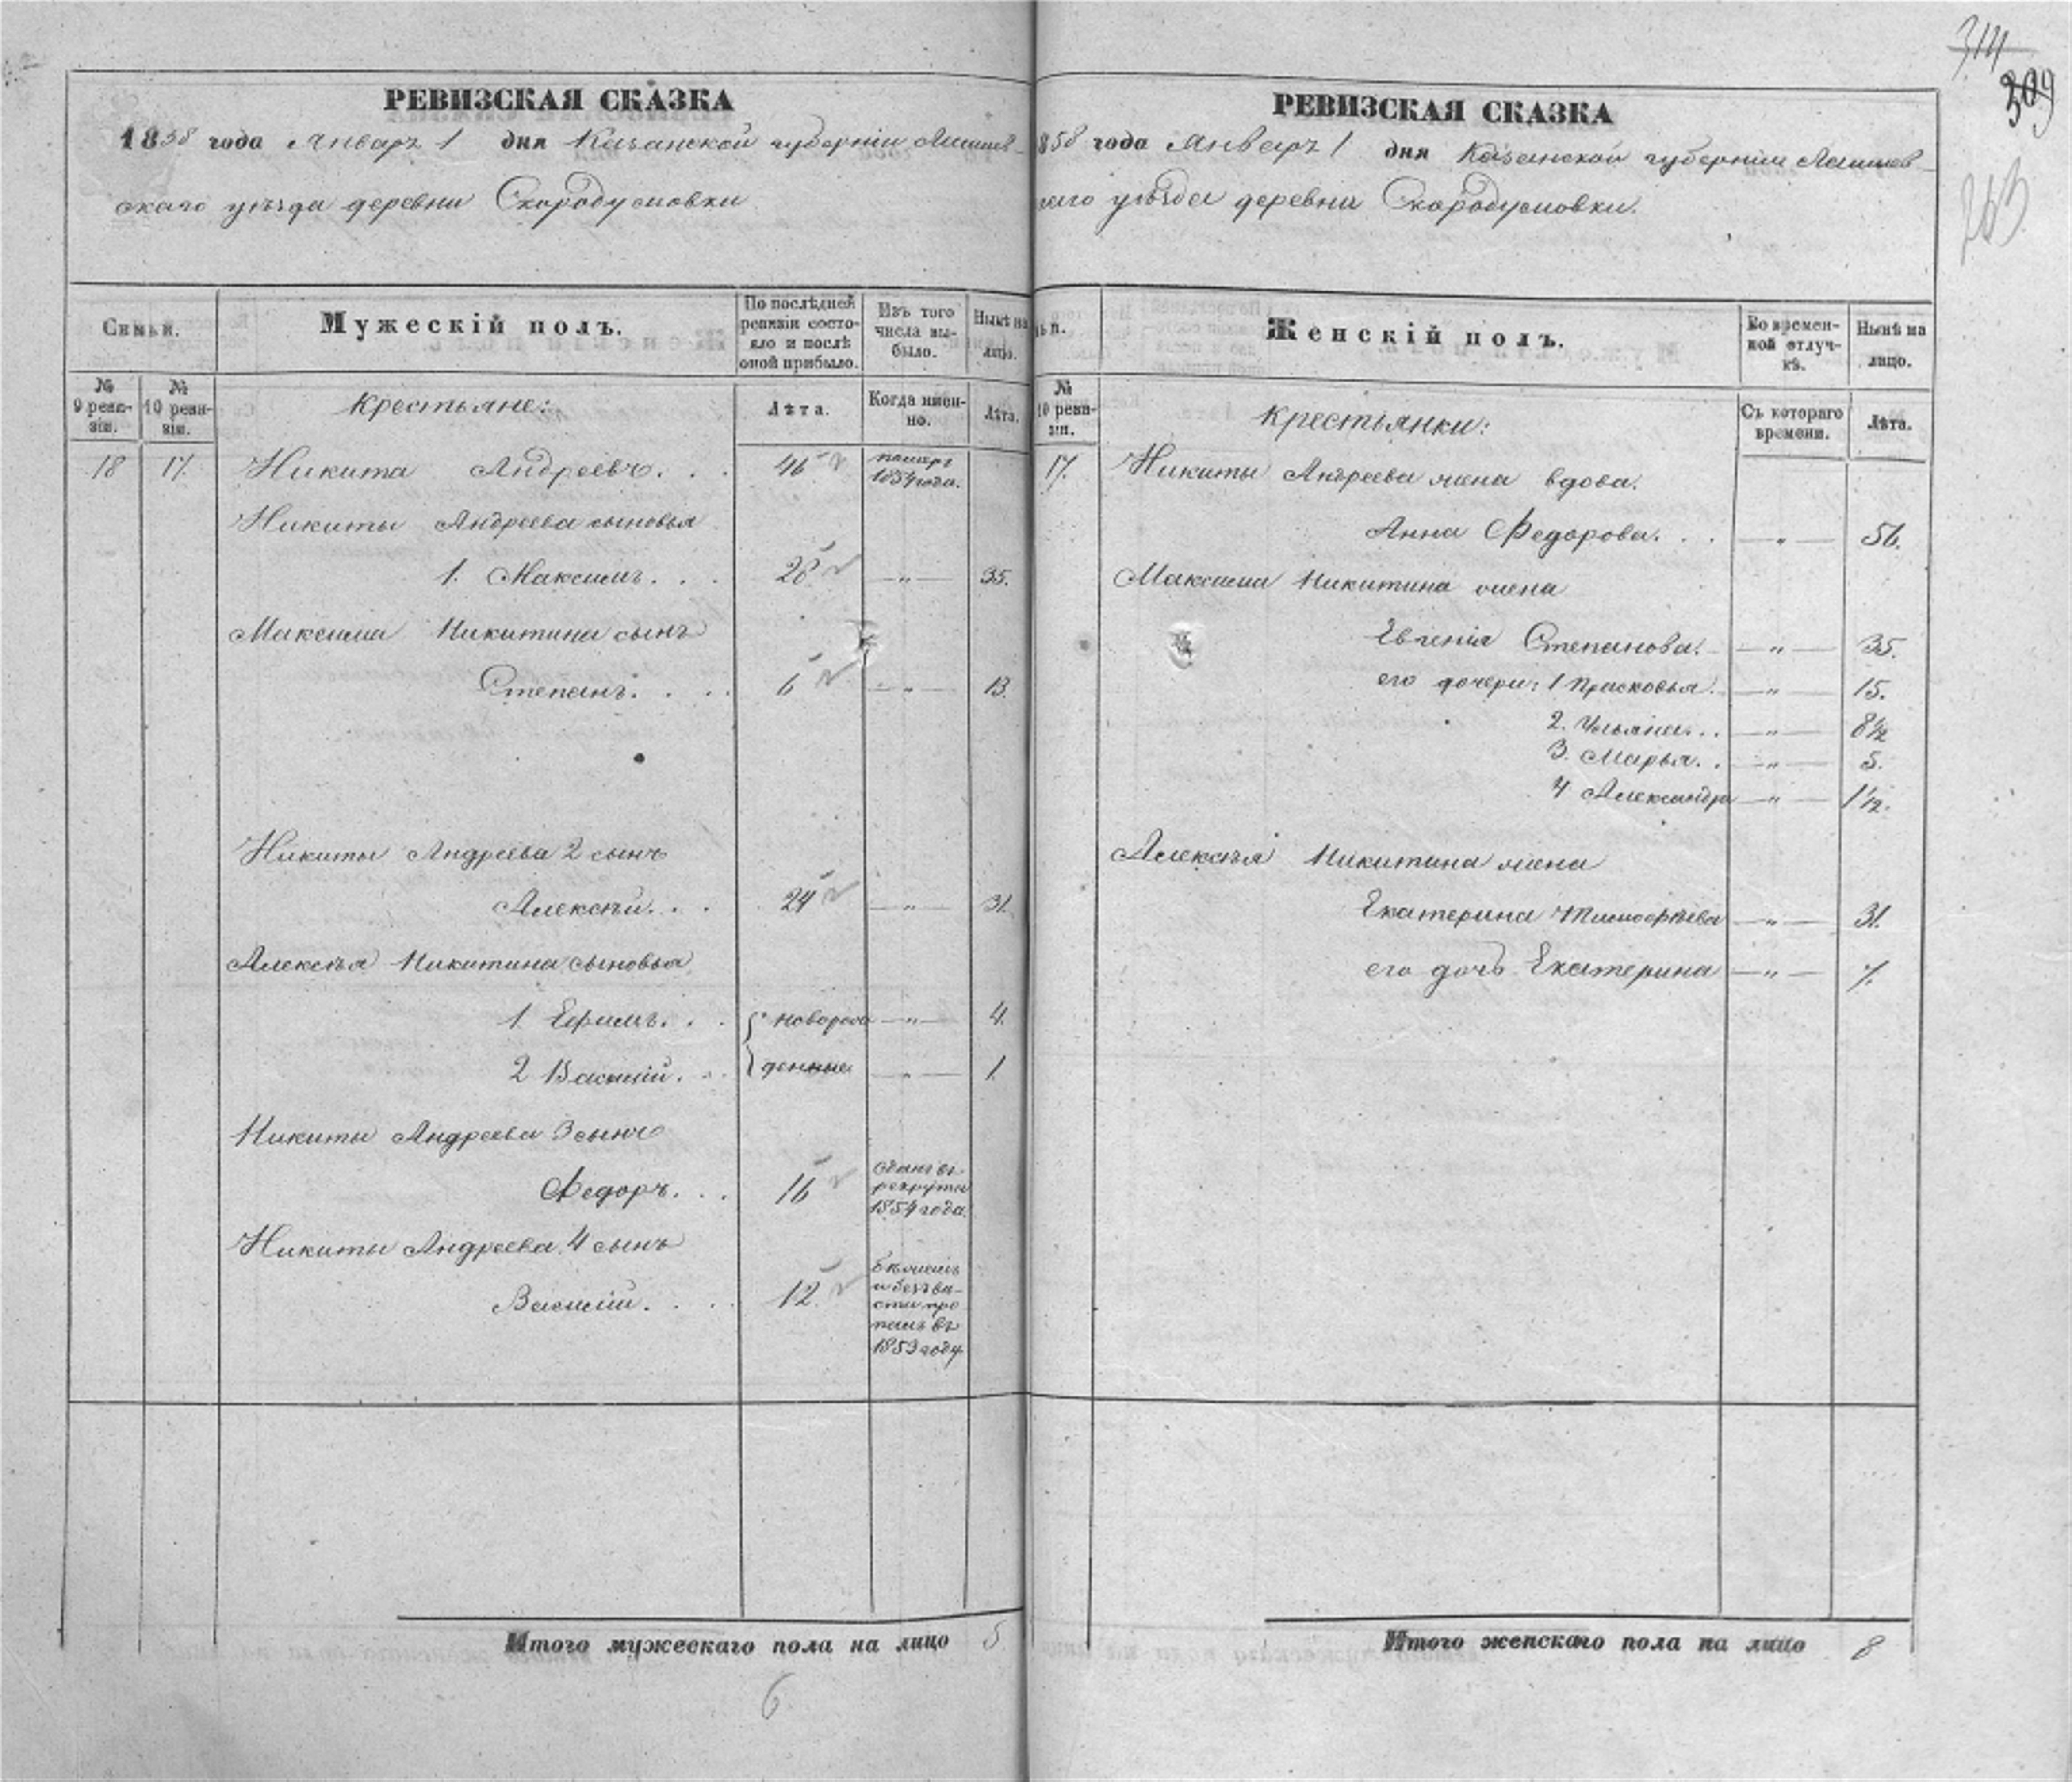 314
309
263
РЕВИЗСКАЯ СКАЗКА
1858 года Январъ 1 дня Казанской губерніи Лаишев-
скаго уѣзда деревни
Семьи.
Мужескій полъ.
По послѣдней ревизіи состояло и послѣ оной прибыло.
Изъ того числа выбыло.
Нынѣ на лицо.
№ 9 ревизіи.
№ 10 ревизіи.
Крестьяне:
Лѣта.
Когда именно.
Лѣта.
18 17. Никита Андреевъ. . . 46 померъ 1854 года.
Никиты Андреева сыновья
1. Максимъ. . . 28 —„— 35.
Максима Никитина сынъ
Степанъ. . . . 6 —„— 13.
Никиты Андреева 2 сынъ
Алексѣй. . . 24 —„— 31.
Алексѣя Никитина сыновья
1. Ефимъ. . . новорож —„— 4.
2 Василій. . . денные. —„— 1.
Никиты Андреева 3 сынъ
Федоръ. . . 16 сданъ въ рекруты 1854 года.
Никиты Андреева 4 сынъ
Василій. . . . 12. бѣжалъ и безъ вѣсти пропалъ въ 1853 году
Итого мужескаго пола на лицо 5
6
РЕВИЗСКАЯ СКАЗКА
858 года Январъ 1 дня Казанской губерніи Лаишев-
скаго уѣзда деревни
ьи.
Женскій полъ.
Во временной отлучкѣ.
Нынѣ на лицо.
№ 10 ревизіи.
Крестьянки:
Съ котораго времени.
Лѣта.
17. Никиты Андреева жена вдова.
Анна Федорова. . . —„— 56.
Максима Никитина жена
Евгенія Степанова. —„— 35.
его дочери: 1 Прасковья. —„— 15.
2. Ульяна. . . —„— 8½
3. Марья. . —„— 5.
4 Александра —„— 1½.
Алексѣя Никитина жена
Екатерина Тимофѣева —„— 31.
его дочь Екатерина —„— 7.
Итого женскаго пола на лицо 8